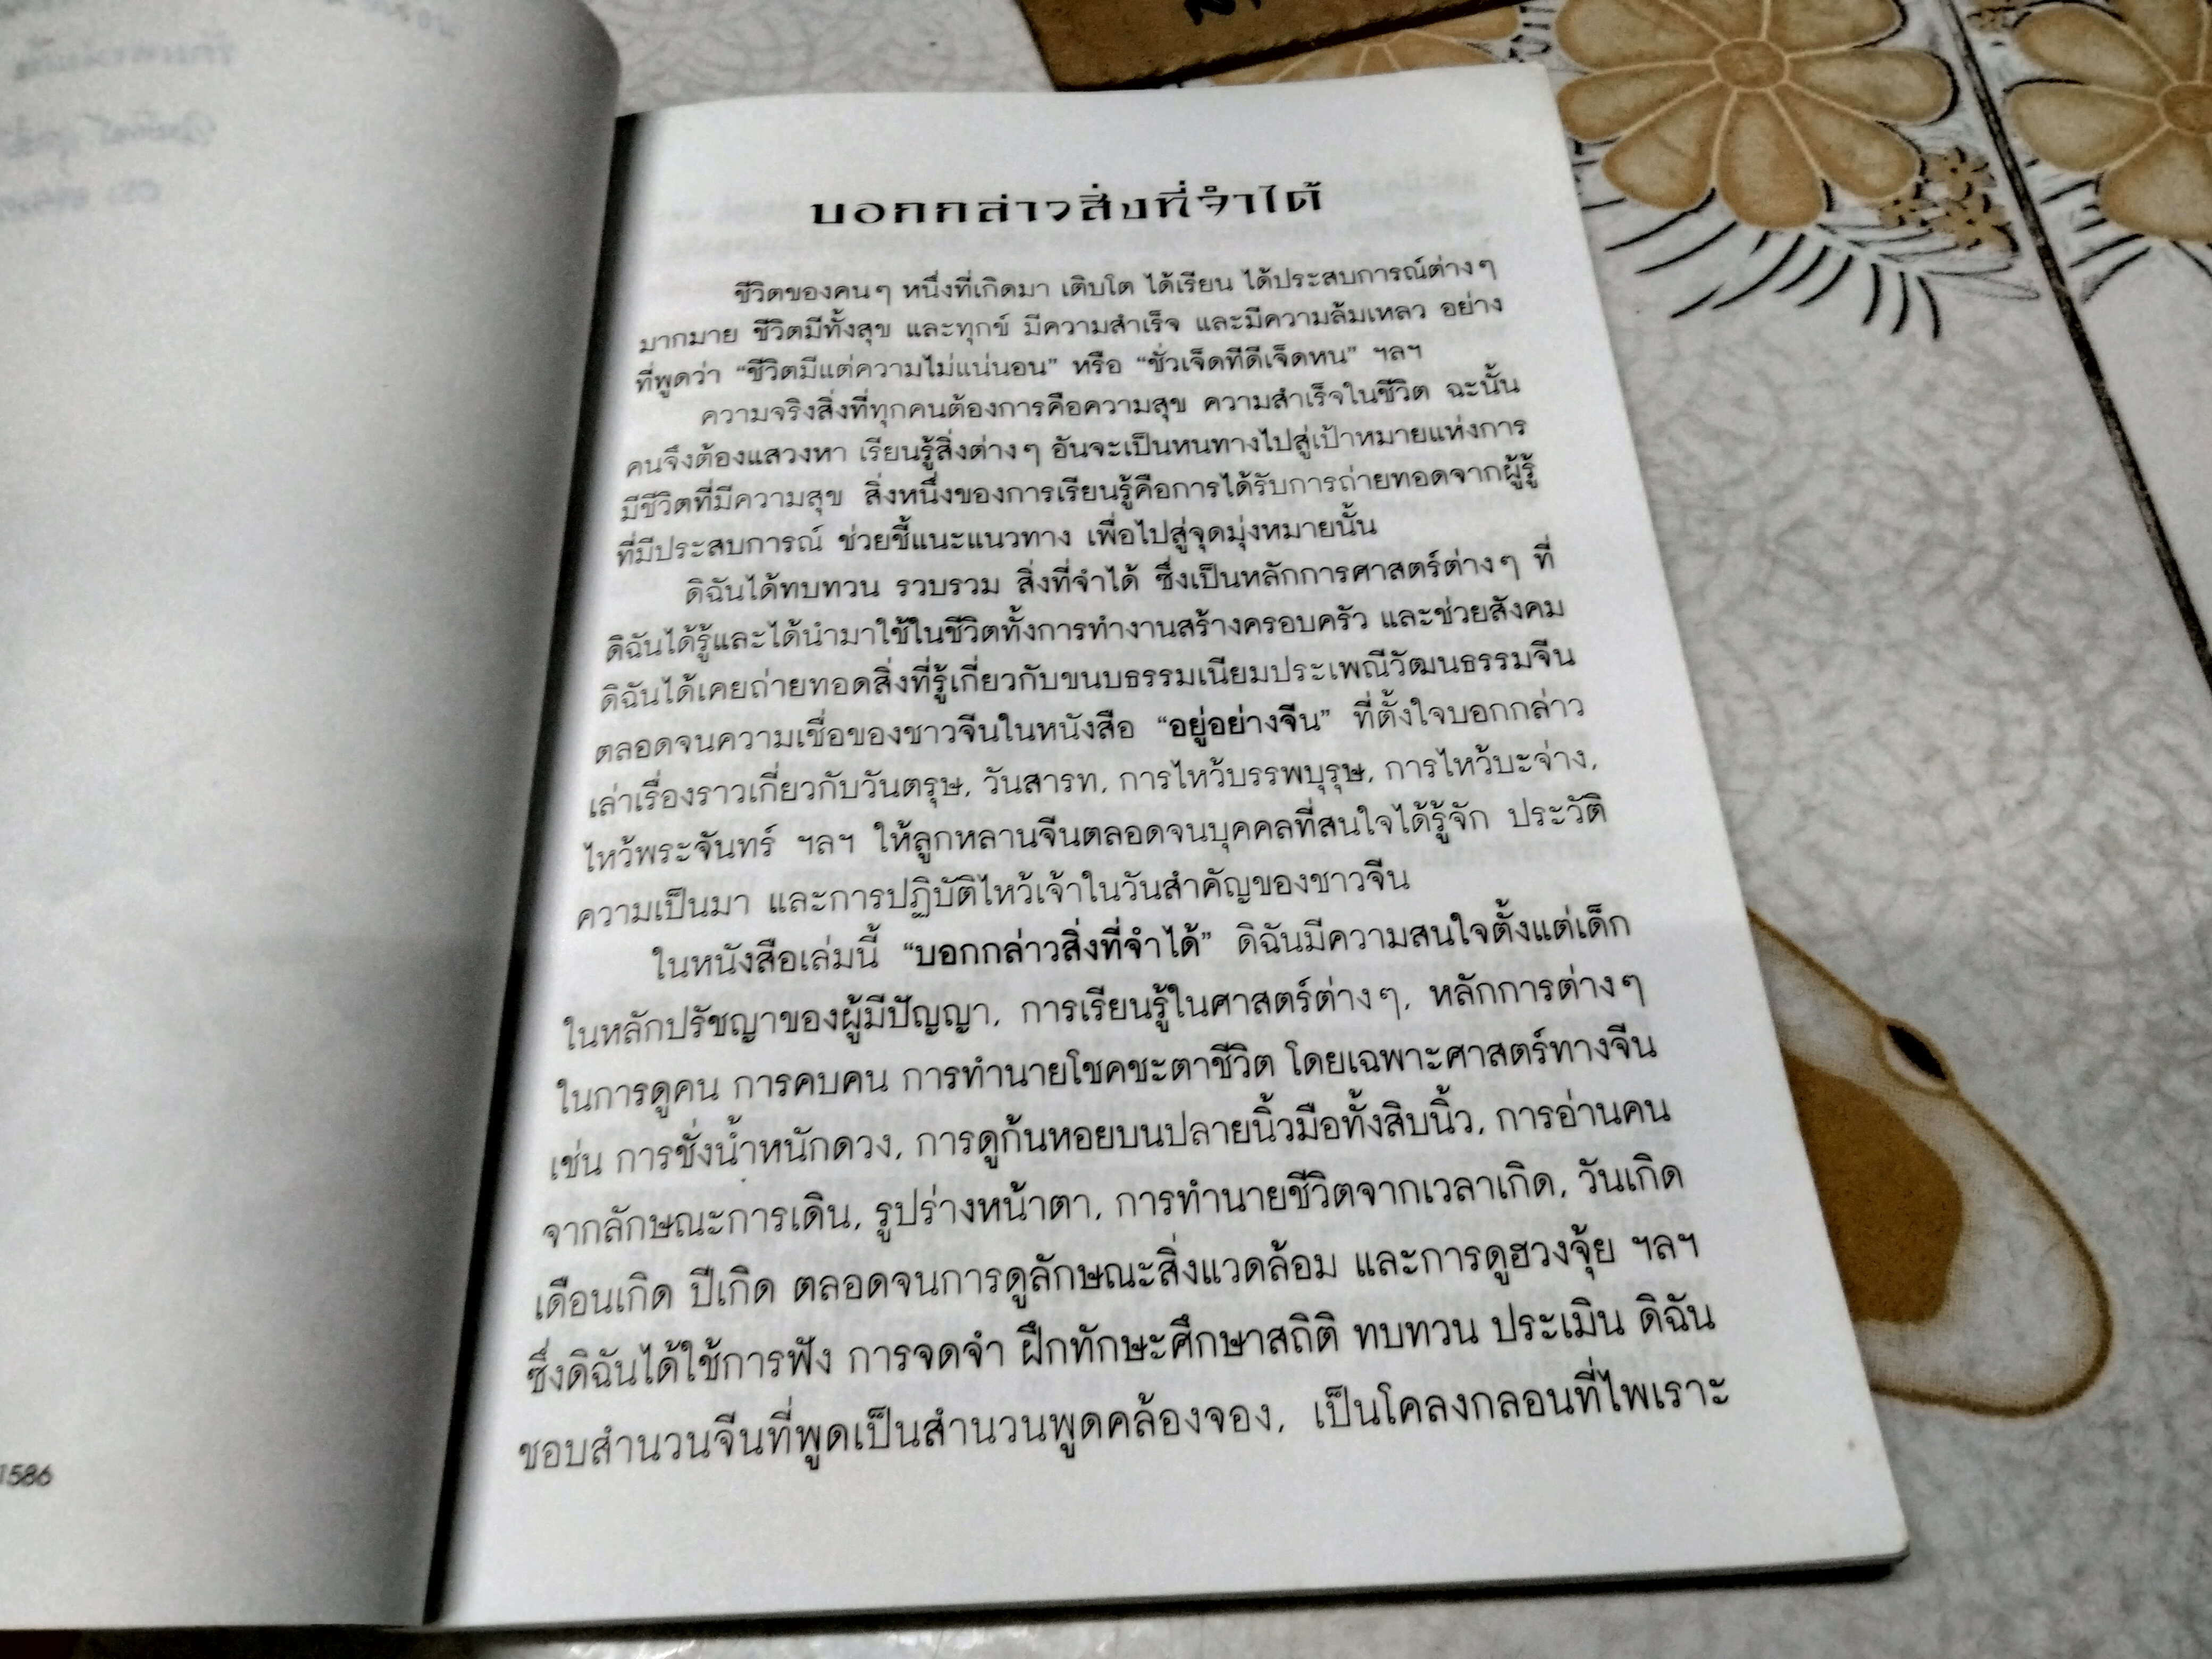 1586
บอกกล่าวสิ่งที่จำได้
ชีวิตของคนๆ หนึ่งที่เกิดมา เติบโต ได้เรียน ได้ประสบการณ์ต่างๆ
มากมาย ชีวิตมีทั้งสุข และทุกข์ มีความสำเร็จ และมีความล้มเหลว อย่าง
ที่พูดว่า “ชีวิตมีแต่ความไม่แน่นอน” หรือ “ชั่วเจ็ดทีดีเจ็ดหน” ฯลฯ
ความจริงสิ่งที่ทุกคนต้องการคือความสุข ความสำเร็จในชีวิต ฉะนั้น
คนจึงต้องแสวงหา เรียนรู้สิ่งต่างๆ อันจะเป็นหนทางไปสู่เป้าหมายแห่งการ
มีชีวิตที่มีความสุข สิ่งหนึ่งของการเรียนรู้คือการได้รับการถ่ายทอดจากผู้รู้
ที่มีประสบการณ์ ช่วยชี้แนะแนวทาง เพื่อไปสู่จุดมุ่งหมายนั้น
ดิฉันได้ทบทวน รวบรวม สิ่งที่จำได้ ซึ่งเป็นหลักการศาสตร์ต่างๆ ที่
ดิฉันได้รู้และได้นำมาใช้ในชีวิตทั้งการทำงานสร้างครอบครัว และช่วยสังคม
ดิฉันได้เคยถ่ายทอดสิ่งที่รู้เกี่ยวกับขนบธรรมเนียมประเพณีวัฒนธรรมจีน
ตลอดจนความเชื่อของชาวจีนในหนังสือ “อยู่อย่างจีน” ที่ตั้งใจบอกกล่าว
เล่าเรื่องราวเกี่ยวกับวันตรุษ, วันสารท, การไหว้บรรพบุรุษ, การไหว้บะจ่าง,
ไหว้พระจันทร์ ฯลฯ ให้ลูกหลานจีนตลอดจนบุคคลที่สนใจได้รู้จัก ประวัติ
ความเป็นมา และการปฏิบัติไหว้เจ้าในวันสำคัญของชาวจีน
ในหนังสือเล่มนี้ “บอกกล่าวสิ่งที่จำได้” ดิฉันมีความสนใจตั้งแต่เด็ก
ในหลักปรัชญาของผู้มีปัญญา, การเรียนรู้ในศาสตร์ต่างๆ, หลักการต่างๆ
ในการดูคน การคบคน การทำนายโชคชะตาชีวิต โดยเฉพาะศาสตร์ทางจีน
เช่น การชั่งน้ำหนักดวง, การดูก้นหอยบนปลายนิ้วมือทั้งสิบนิ้ว, การอ่านคน
จากลักษณะการเดิน, รูปร่างหน้าตา, การทำนายชีวิตจากเวลาเกิด, วันเกิด
เดือนเกิด ปีเกิด ตลอดจนการดูลักษณะสิ่งแวดล้อม และการดูฮวงจุ้ย ฯลฯ
ซึ่งดิฉันได้ใช้การฟัง การจดจำ ฝึกทักษะศึกษาสถิติ ทบทวน ประเมิน ดิฉัน
ชอบสำนวนจีนที่พูดเป็นสำนวนพูดคล้องจอง, เป็นโคลงกลอนที่ไพเราะ